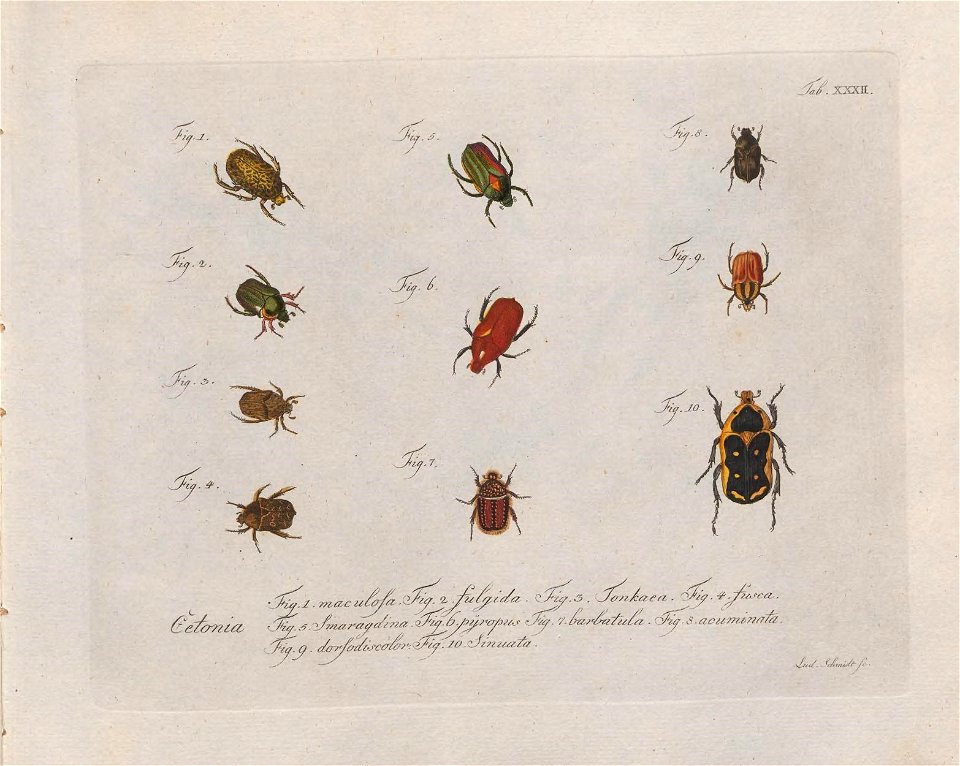 Tab. XXXII.
Fig. 1.
Fig. 2.
Fig. 3.
Fig. 4.
Fig. 5.
Fig. 6.
Fig. 7.
Fig. 8.
Fig. 9.
Fig. 10.
Cetonia
Fig. 1. maculosa. Fig. 2. fulgida. Fig. 3. Tonkaea. Fig. 4. fusca.
Fig. 5. Smaragdina. Fig. 6. pÿropus Fig. 7. barbatula. Fig. 8. acuminata.
Fig. 9. dorsodiscolor. Fig. 10. Sinuata.
Lud. Schmidt sc.